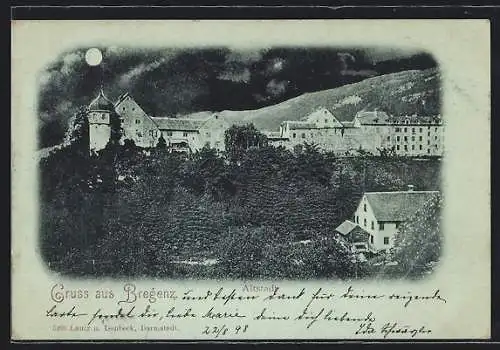 Altstadt.
Gruss aus Bregenz und besten Dank für deine reizende
Karte sendet dir, liebe Marie deine dich liebende
Lautz u. Isenbeck, Darmstadt. 22/8 98 Ida